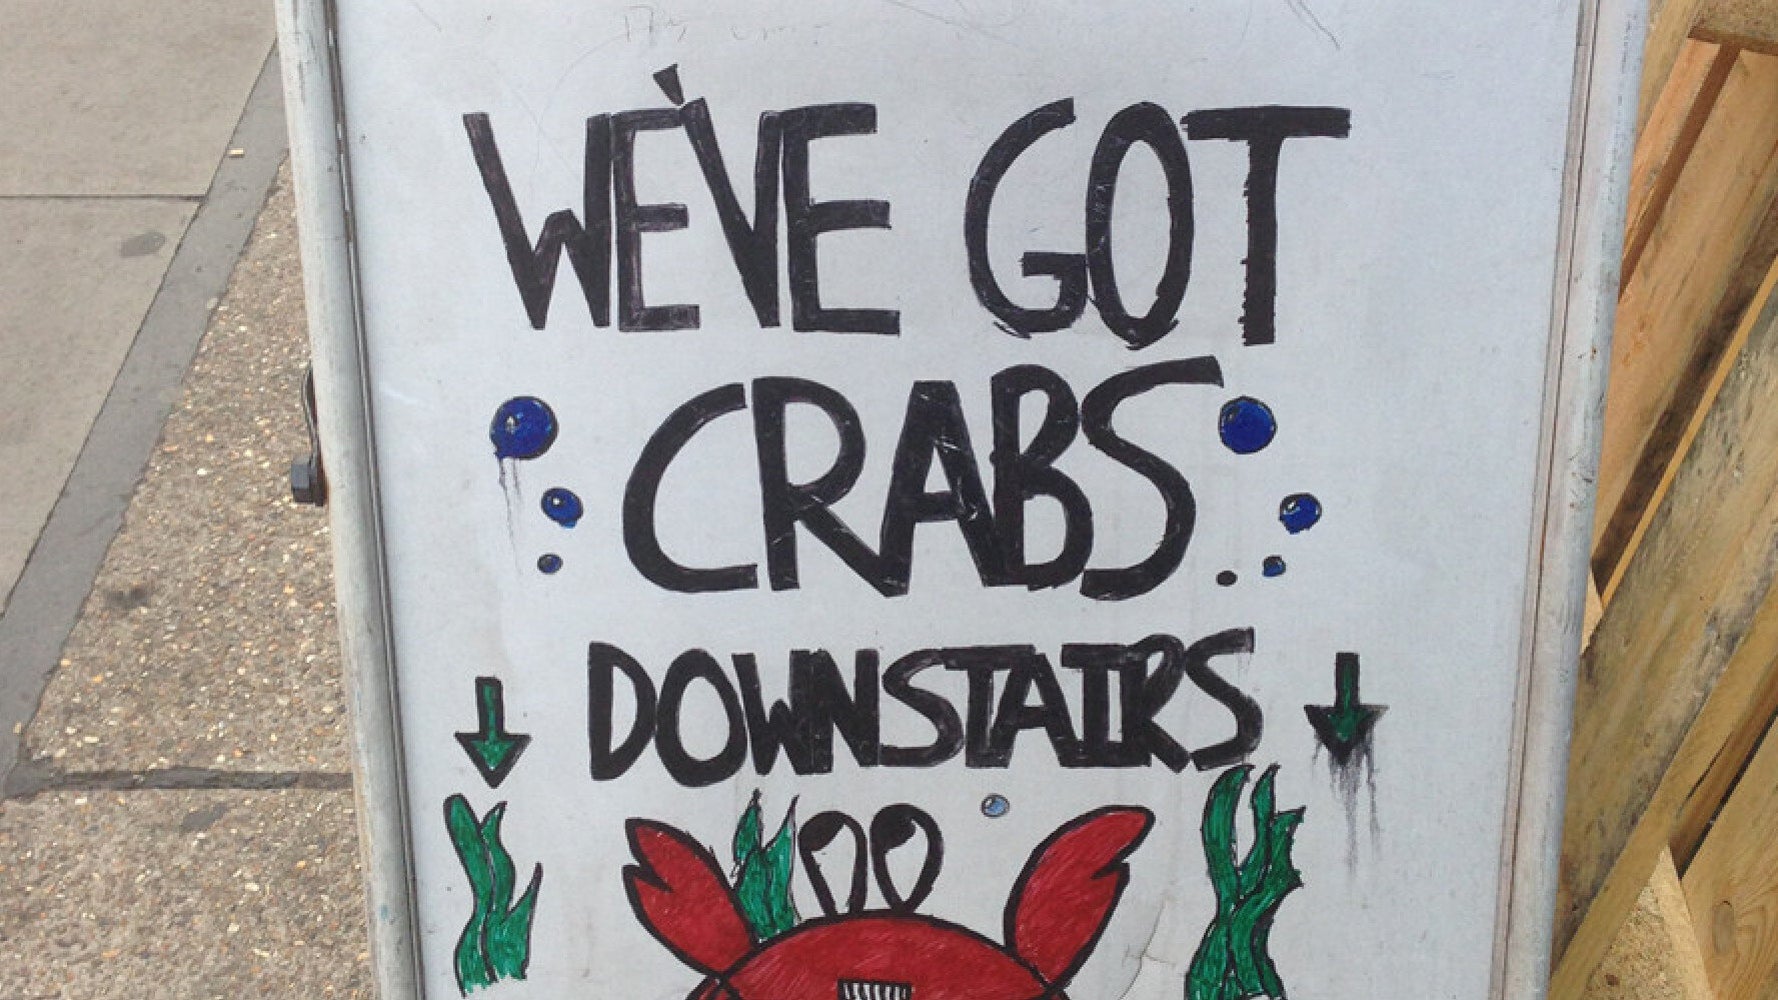 WE'VE GOT
CRABS
DOWNSTAIRS